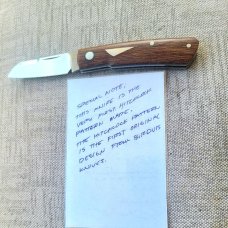 SPECIAL NOTE.
THIS KNIFE IS THE
VERY FIRST HITCHCOCK
PATTERN MADE.
THE HITCHCOCK PATTERN
IS THE FIRST ORIGINAL
DESIGN FROM
KNIVES.